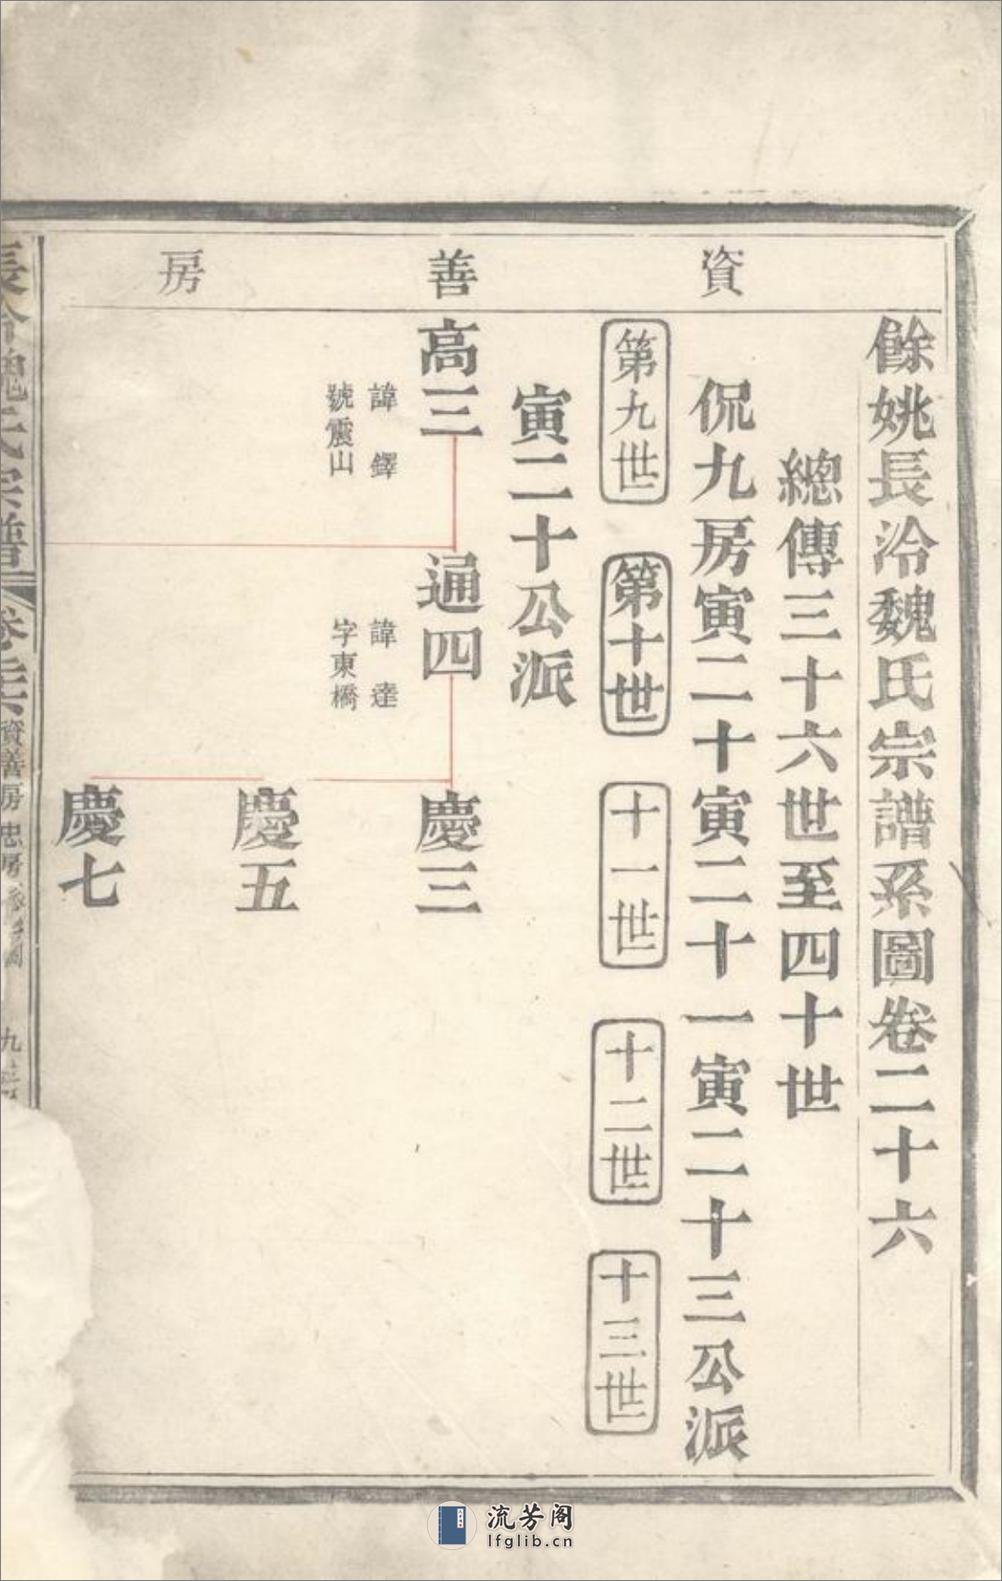 資善房
餘姚長泠魏氏宗譜系圖卷二十六
總傳三十六世至四十世
侃九房寅二十寅二十一寅二十三公派
第九世
第十世
十一世
十二世
十三世
寅二十公派
高三
諱鐸
號震山
通四
諱達
字東橋
慶三
慶五
慶七
長泠魏氏宗譜
卷二六
資善房
忠房
九
流芳阁
lfglib.cn